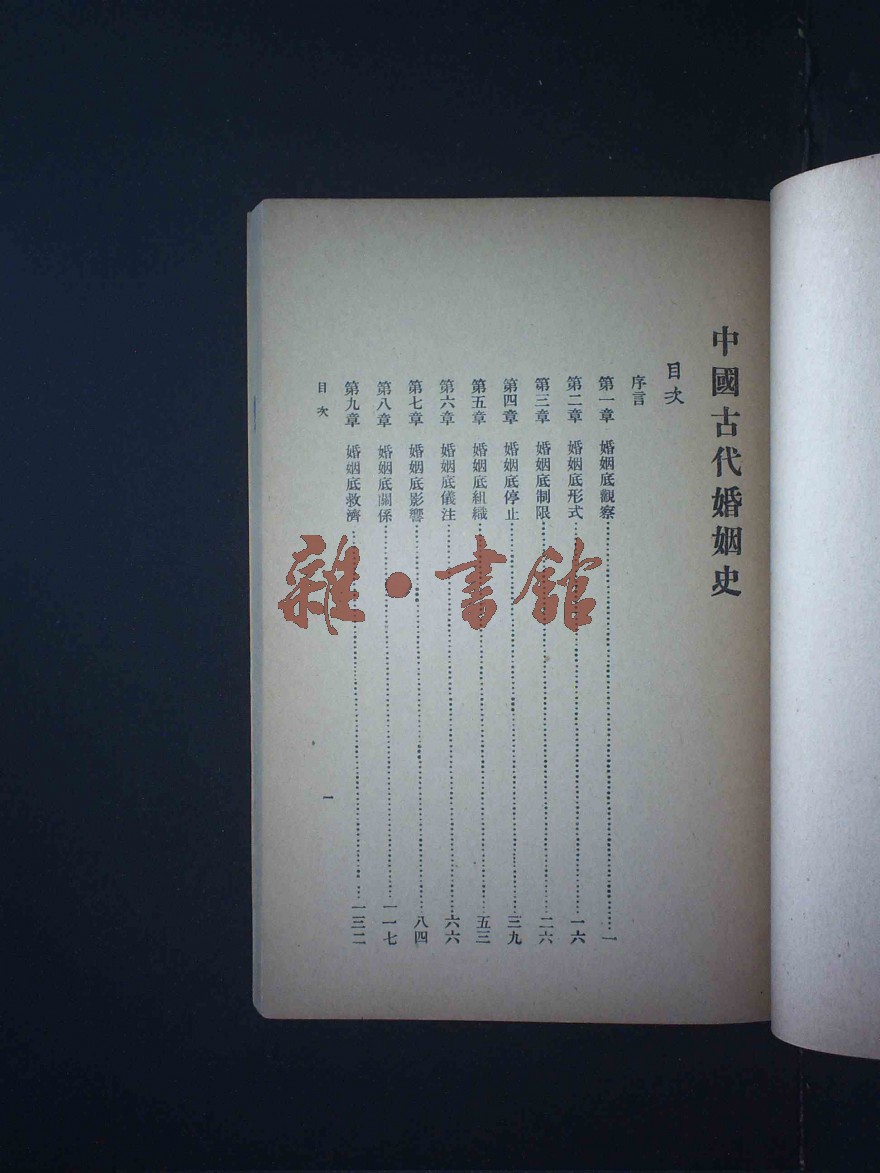 中國古代婚姻史
目次
序言
第一章 婚姻底觀察…………一
第二章 婚姻底形式…………一六
第三章 婚姻底制限…………二六
第四章 婚姻底停止…………三九
第五章 婚姻底組織…………五三
第六章 婚姻底儀注…………六六
第七章 婚姻底影響…………八四
第八章 婚姻底關係…………一一七
第九章 婚姻底救濟…………一三二
目次
一
雜·書館